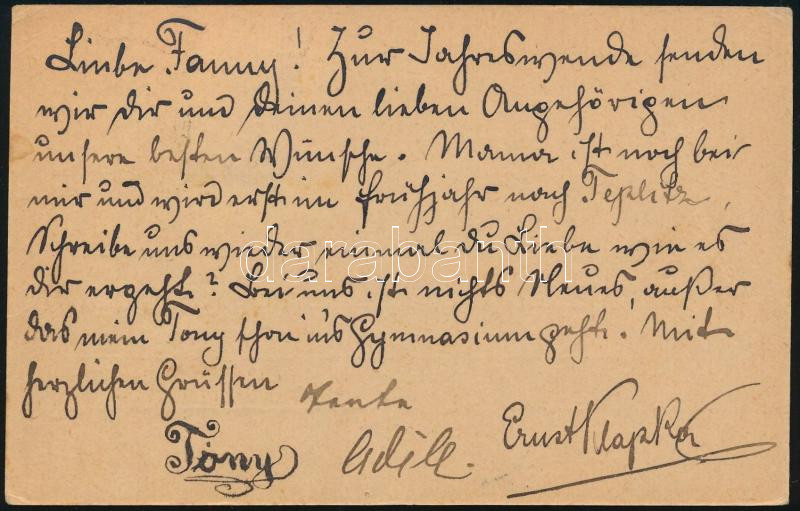 Liebe Fanny! Zur Jahreswende senden
wir dir und deinen lieben Angehörigen
unsere besten Wünsche. Mama ist noch bei
mir und wird erst im Frühjahr nach Teplitz,
Schreibe uns wieder einmal du Liebe wie es
dir ergeht? Bei uns ist nichts Neues, außer
das mein Tony schon in's Gymnasium geht. Mit
herzlichen Grüssen
Tante
Tony Adele. Ernst Klapka
darabanth